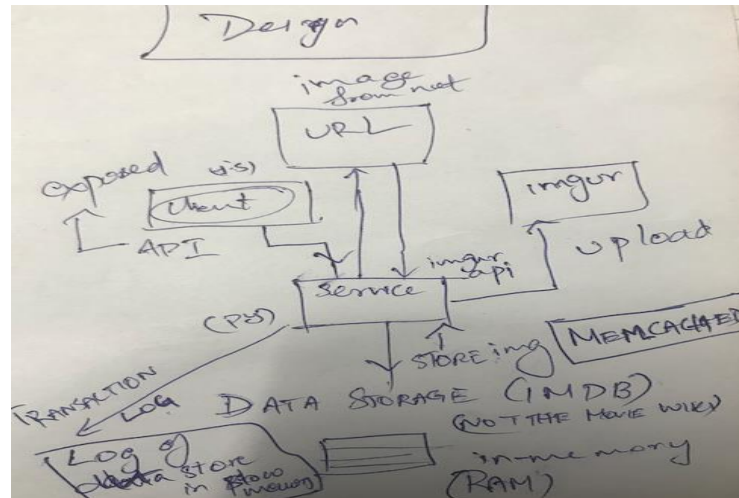 Design
image
from net
URL
exposed
Client
API
imgur
upload
imgur
api
Service
(PY)
STORE img
MEMCACHED
TRANSACTION
LOG
DATA STORAGE (IMDB)
(NOT THE MOVIE WIKI)
Log of
data store
in
in-memory
(RAM)